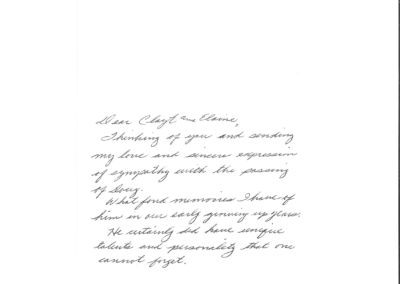 Dear Clayt and Elaine,
Thinking of you and sending
my love and sincere expression
of sympathy with the passing
of Doug.
What fond memories I have of
him in our early growing up years.
He certainly did have unique
talents and personality that one
cannot forget.